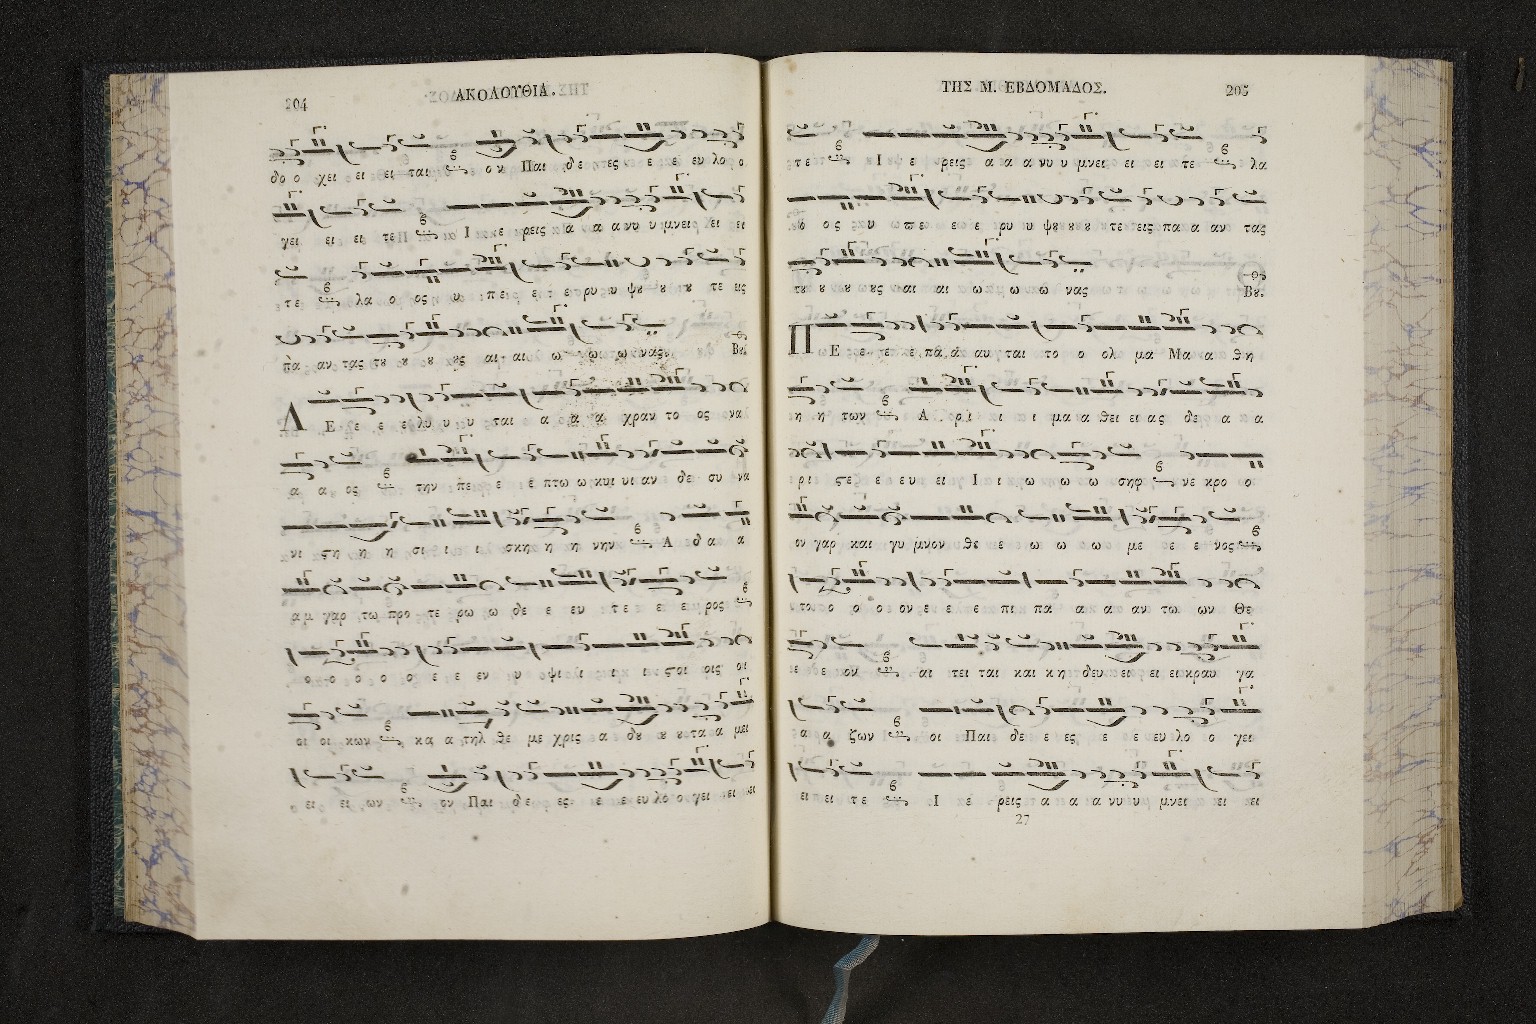 204
ΑΚΟΛΟΥΘΙΑ.
δο ο χει ει ει ει ται ον Παι δε ες ε ε ευ λο ο
γει ει ει ει τε Ι ε ρεις α α α νυ υ μνει ει ει ει
τε λα ο ος υ πε ε ε ε ρυ υ ψȣ ȣ ȣ τε εις
πα αν τας τȣ ȣ ȣ ȣς αι αι ω ω ω νας Βȣ.
Λ Ε ε ε ε λυ υ υ ται α α α χραν το ος να
α α ος την πε ε ε πτω ω κυι υι αν δε συ να
νι ϛη η η σι ι ι σκη η η νην Α δα α
αμ γαρ τω προ τε ρω ω δε ε ευ τε ε ε ρος
ο ο ο ο ο ε ε εν υ ψι ι ι ι ϛοι οις οι
οι οι κων κα α τηλ θε με χρις α δȣ ȣ ȣ τα α μει
ει ει ων ον Παι δε ες ε ε ευ λο ο γει ει ει
ΤΗΣ Μ. ΕΒΔΟΜΑΔΟΣ.
205
τε Ι ε ρεις α α α νυ υ μνει ει ει ει τε λα
ος υ πε ε ε ρυ υ ψȣ ȣ ȣ τε εις πα α αν τας
τȣ ȣ ȣ ȣς αι αι ω ω ω νας Βȣ.
Π Ε ε ε ε πα α αυ ται το ο ολ μα Μα α θη
η η των Α ρι ι ι μα α θει ει ας δε α α
ρι ϛε ε ευ ει Ι ι ω ω ω σηφ νε κρο ο
ον γαρ και γυ μνον θε ε ω ω ω με ε ε νος
το ο ο ο ον ε ε ε πι πα α α αν τω ων Θε
ε ε ον αι τει ται και κη δευ ει ει ει κραυ γα
α α ζων οι Παι δε ε ες ε ε ευ λο ο γει
ει ει τε Ι ε ρεις α α α νυ υ μνει ει ει
27